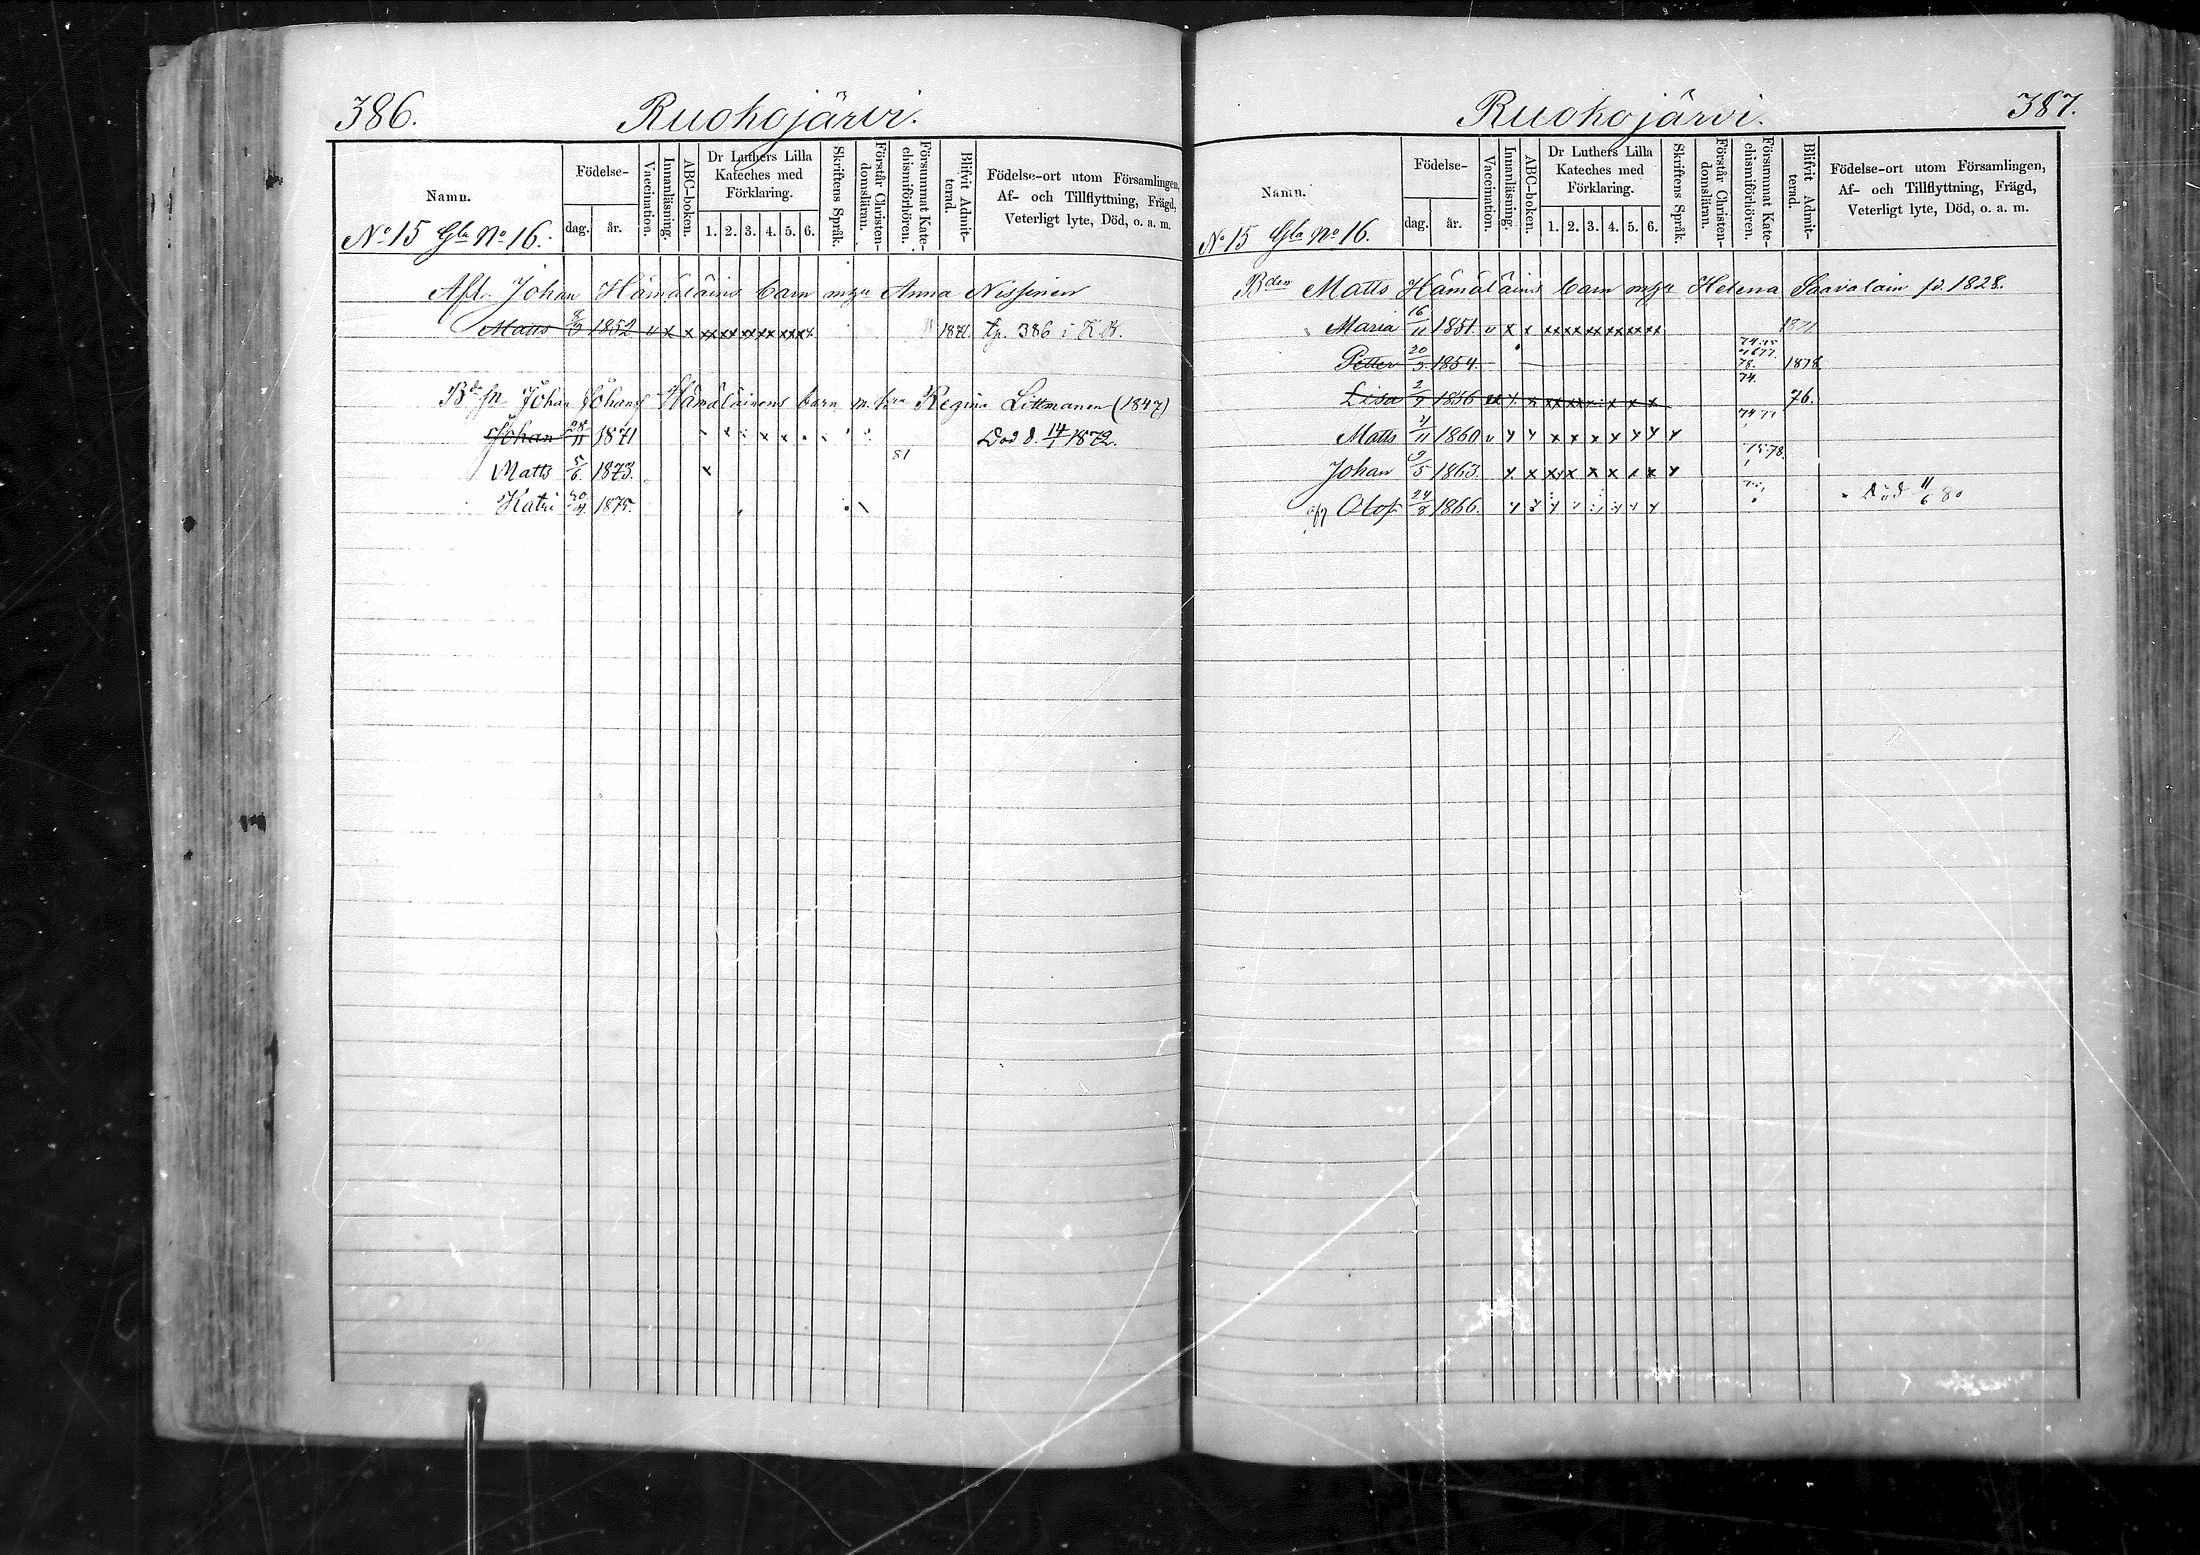 386. Ruokojärvi.
Namn. Födelse- dag. år. Vaccination. Innanläsning. ABC-boken. Dr Luthers Lilla Kateches med Förklaring. 1. 2. 3. 4. 5. 6. Skriftens Språk. Förstår Christendomsläran. Försummat Katechismiförhören. Blifvit Admitterad. Födelse-ort utom Församlingen, Af- och Tillflyttning, Frägd, Veterligt lyte, Död, o. a. m.
No 15 Gla No 16.
Afl. Johan Hämäläins barn m Anna Nissinen
Matts 8/9 1852 v x x xx xx xx xx xxx 1871. 386 i K.B.
Johan Johans Hämäläinens barn m. Regina Littmanen (1847)
Johan 28/11 1871 Död d. 14/1 1872.
Matts 5/6 1873. x 81
Katri 1875.
387. Ruokojärvi.
Namn. Födelse- dag. år. Vaccination. Innanläsning. ABC-boken. Dr Luthers Lilla Kateches med Förklaring. 1. 2. 3. 4. 5. 6. Skriftens Språk. Förstår Christendomsläran. Försummat Katechismiförhören. Blifvit Admitterad. Födelse-ort utom Församlingen, Af- och Tillflyttning, Frägd, Veterligt lyte, Död, o. a. m.
No 15 Gla No 16.
Matts Hämäläins barn Helena Saavalain fd. 1828.
Maria 16/11 1851. v x x xx xx xx xx xx xx
Petter 20/3 1854. 78. 1878
Lisa 2/7 1856 74. 76.
Matts 4/11 1860 v x x x x x x x x x
Johan 9/5 1863. x x x x x x x x x 78.
Olof 24/8 1866. Död 11/6 80